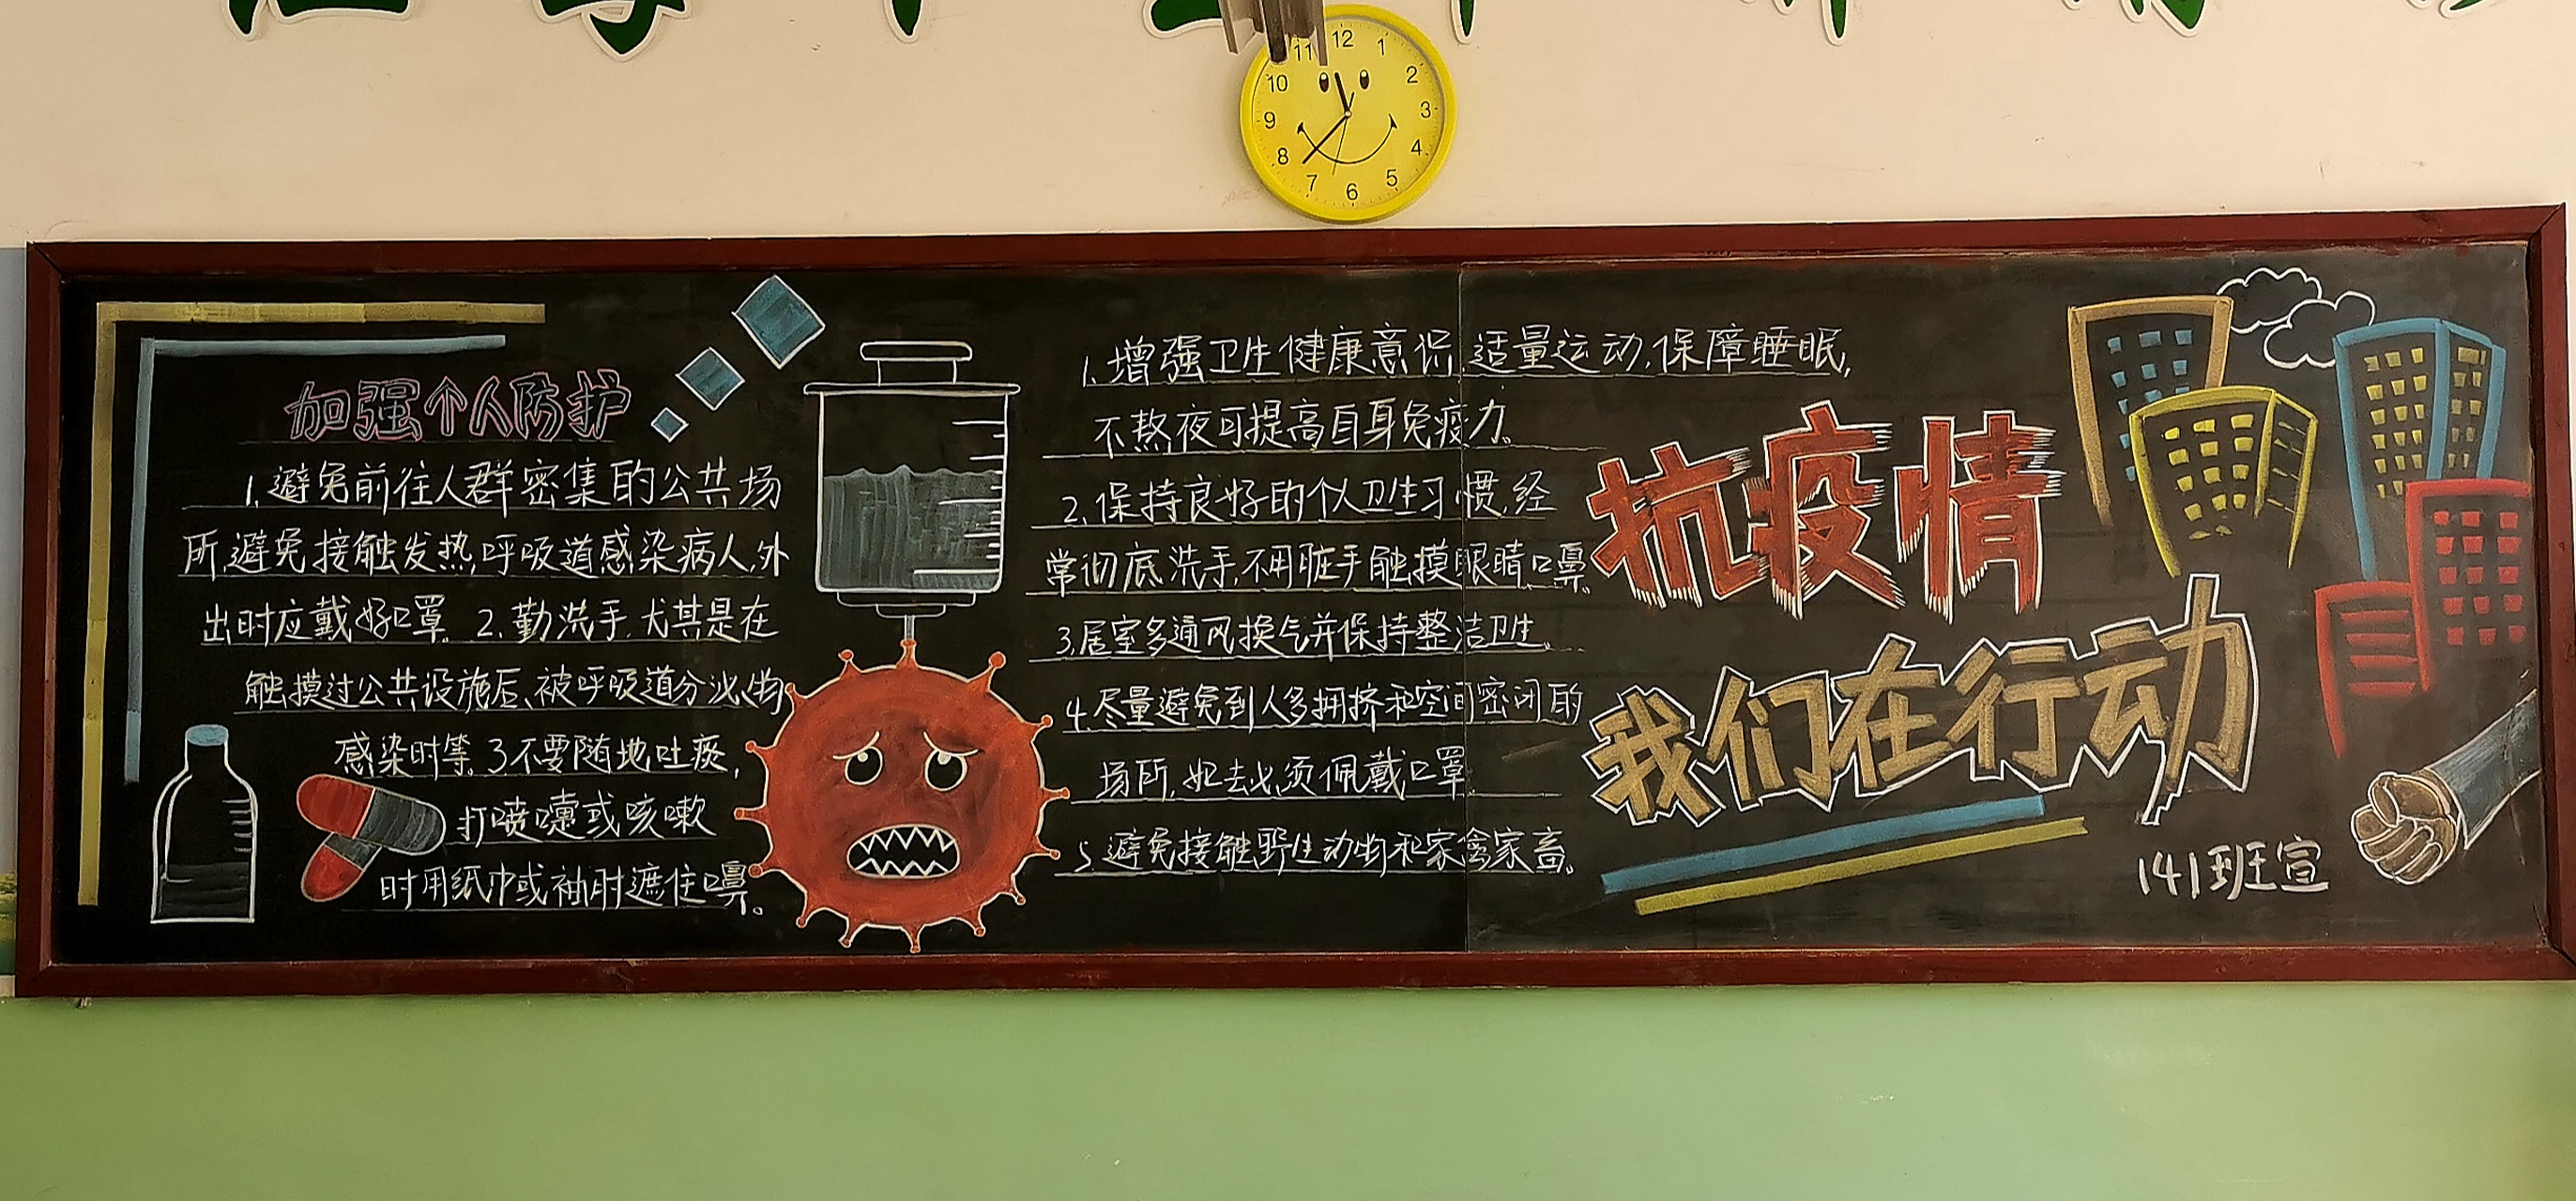 12
11
1
10
2
9
3
8
4
7
5
6
加强个人防护
1.避免前往人群密集的公共场
所,避免接触发热,呼吸道感染病人,外
出时应戴好口罩。2.勤洗手,尤其是在
触摸过公共设施后、被呼吸道分泌物
感染时等。3不要随地吐痰,
打喷嚏或咳嗽
时用纸巾或袖肘遮住口鼻。
1.增强卫生健康意识,适量运动,保障睡眠,
不熬夜可提高自身免疫力。
2.保持良好的个人卫生习惯,经
常彻底洗手,不用脏手触摸眼睛口鼻。
3.居室多通风换气并保持整洁卫生。
4.尽量避免到人多拥挤和空间密闭的
场所,如去必须佩戴口罩
5.避免接触野生动物和家禽家畜。
抗疫情
我们在行动
141班宣